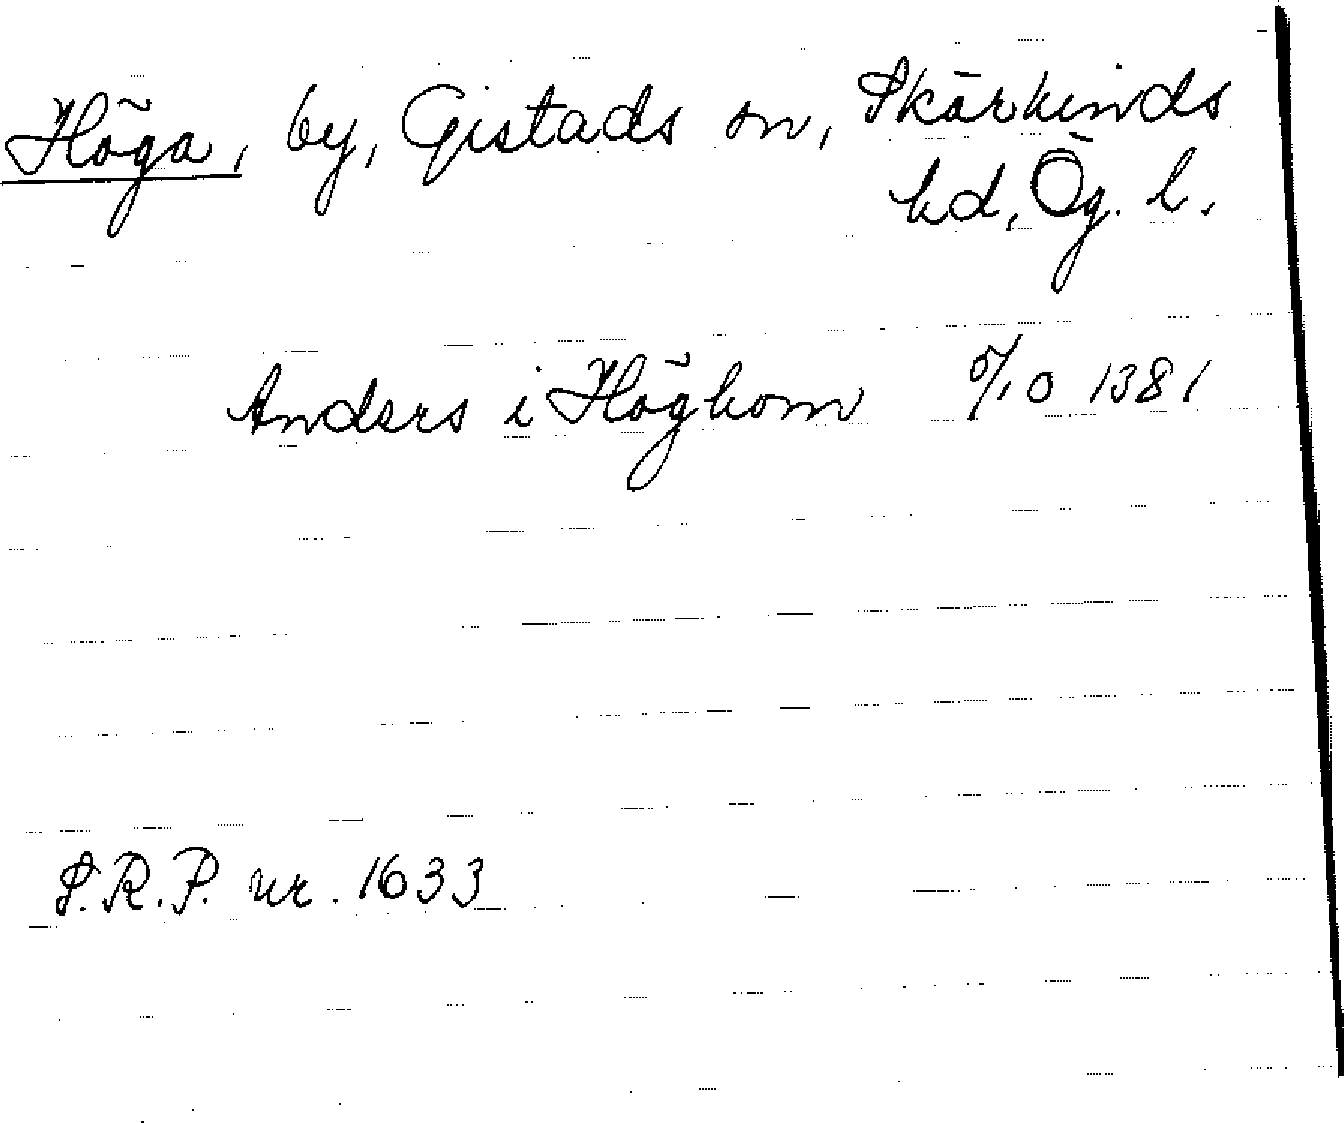 Höga, by, Gistads sn, Skärkinds
hd, Ög. l.
Anders i Höghom 5/10 1381
S.R.P. nr. 1633